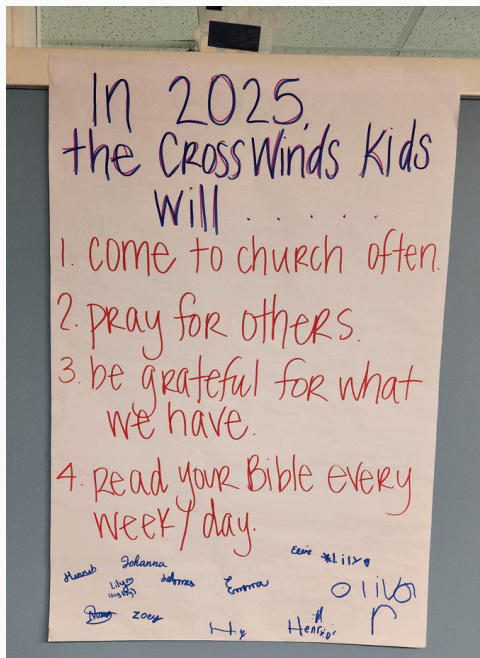 In 2025,
the CrossWinds Kids
will . . . . . .
1. come to church often.
2. pray for others.
3. be grateful for what
we have.
4. Read your Bible every
week/day.
Johanna
Ellie *Lily
Lily
Emma
Oliver
Zoey